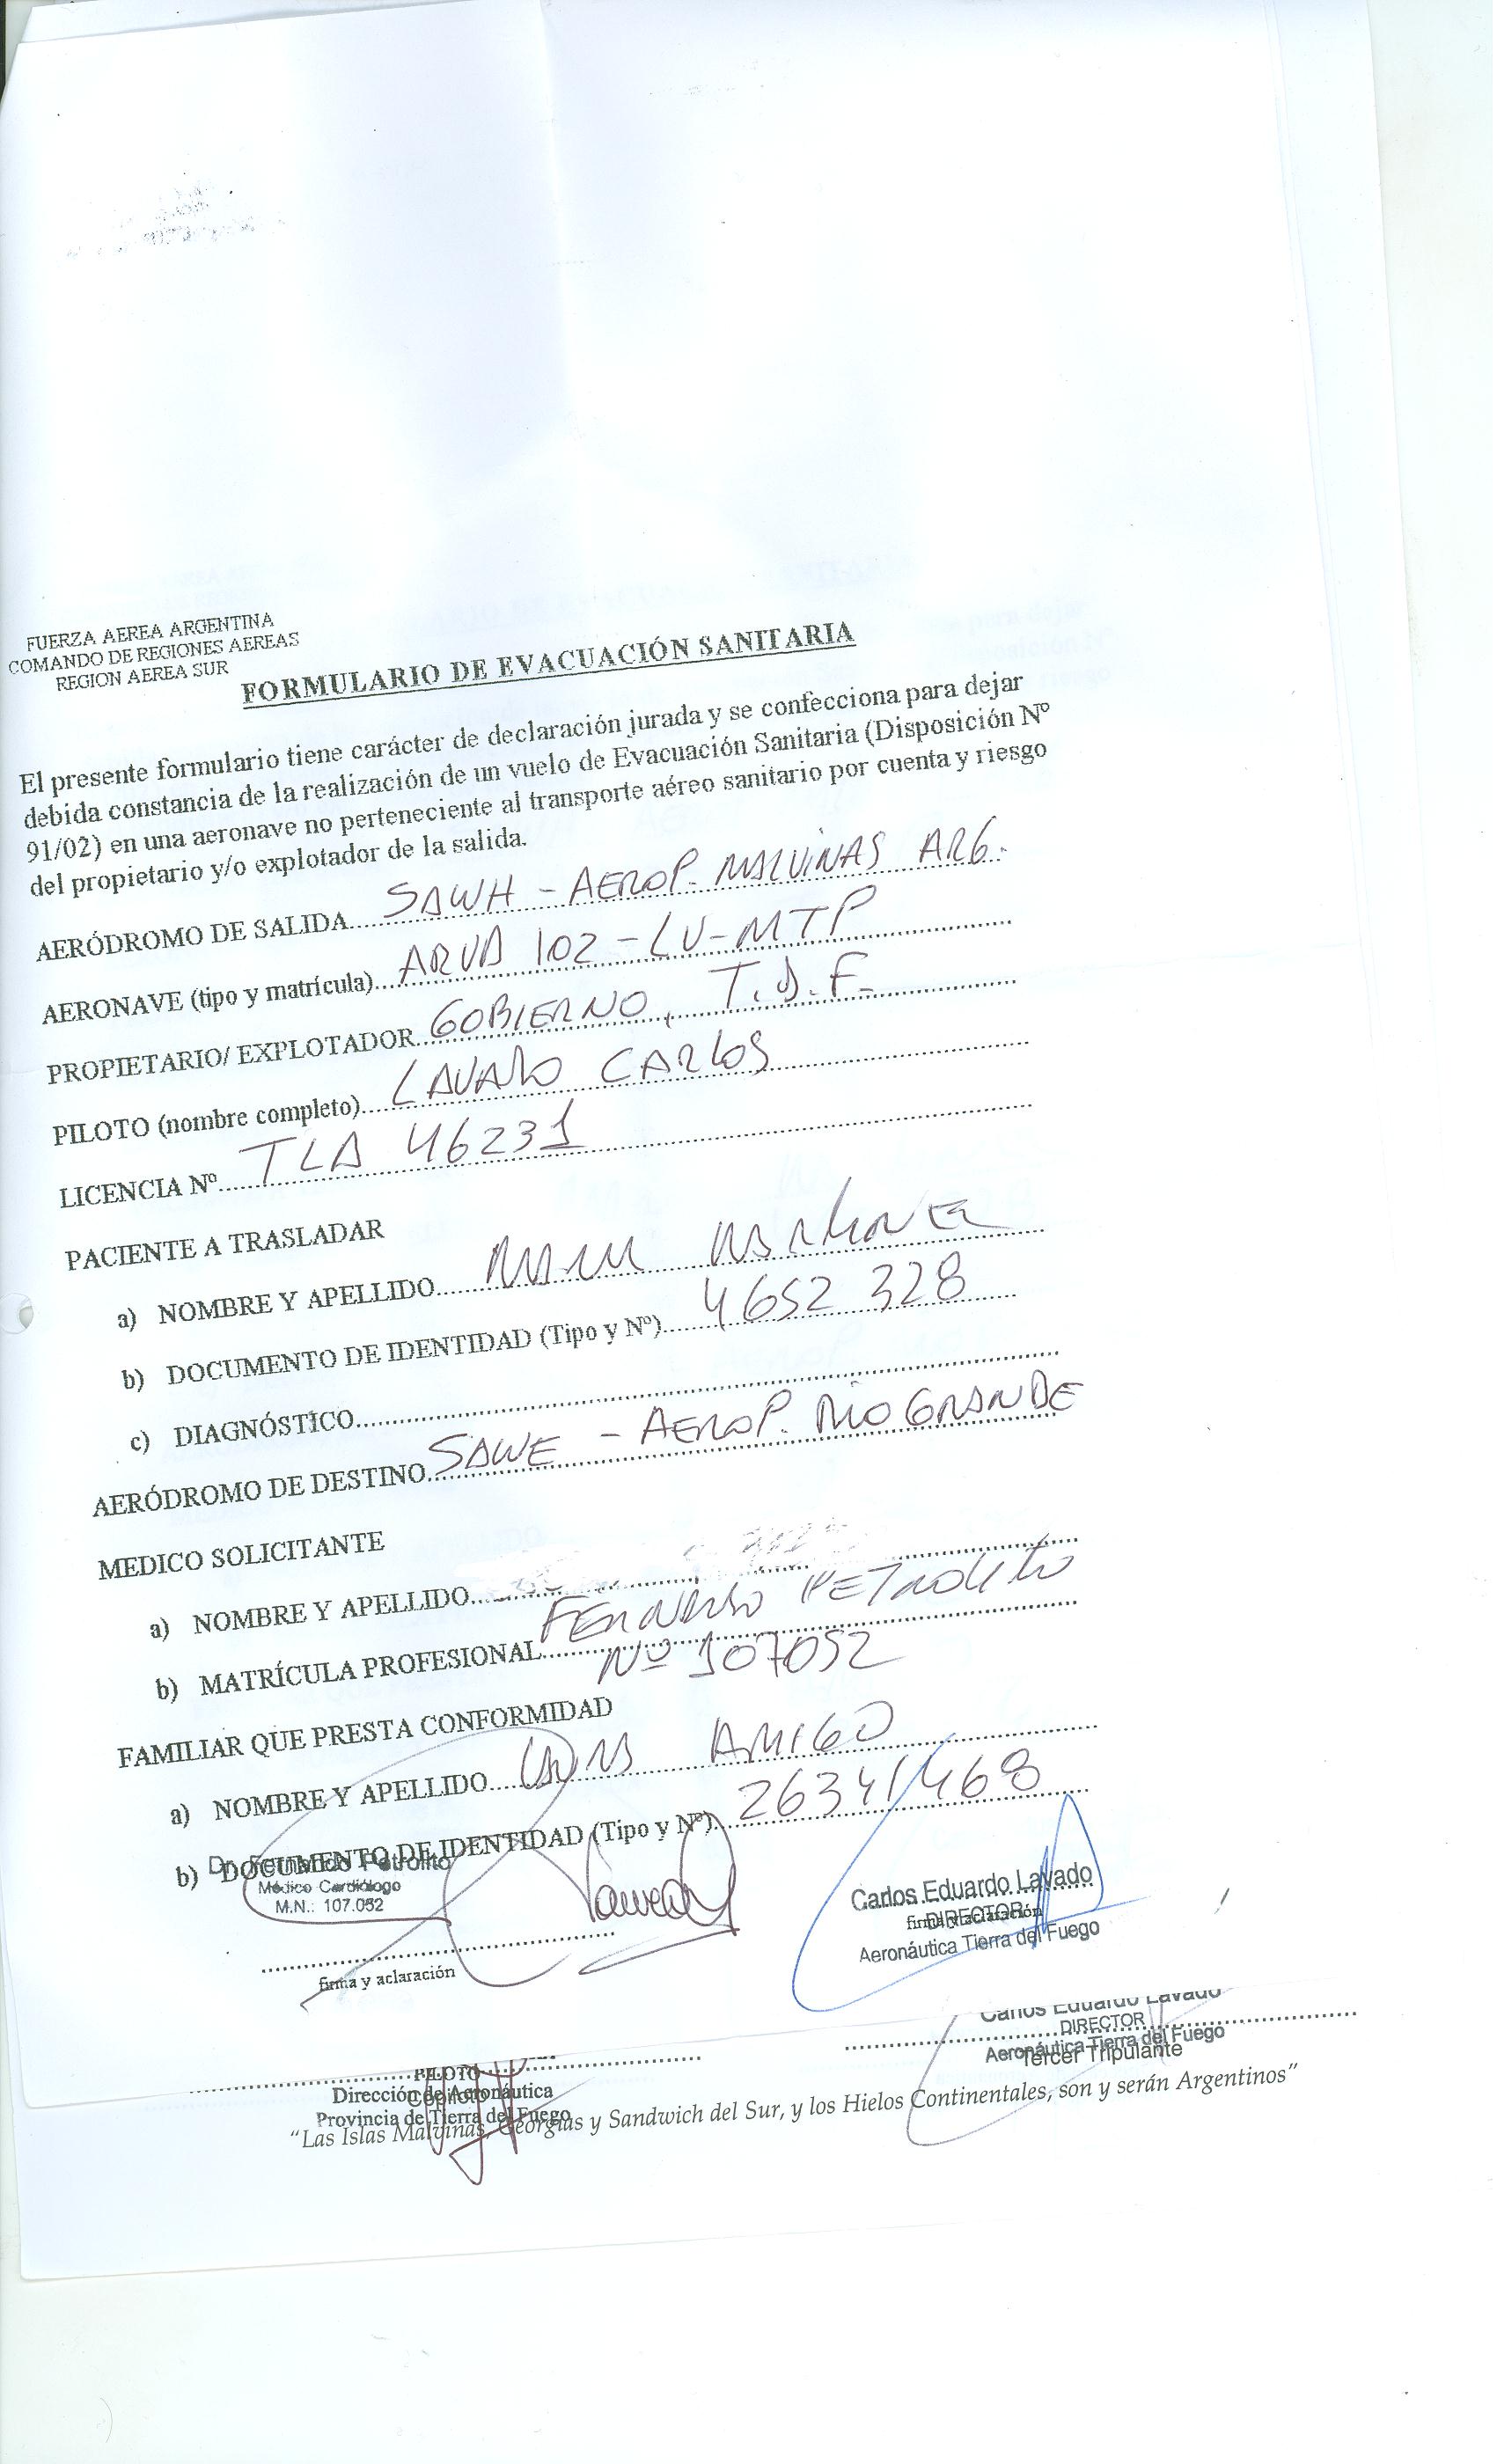 FUERZA AEREA ARGENTINA
COMANDO DE REGIONES AEREAS
REGION AEREA SUR
FORMULARIO DE EVACUACIÓN SANITARIA
El presente formulario tiene carácter de declaración jurada y se confecciona para dejar
debida constancia de la realización de un vuelo de Evacuación Sanitaria (Disposición Nº
91/02) en una aeronave no perteneciente al transporte aéreo sanitario por cuenta y riesgo
del propietario y/o explotador de la salida.
AERÓDROMO DE SALIDA SAWH - AEROP. MALVINAS ARG.
AERONAVE (tipo y matrícula) ARVA 102 - LV-MTP
PROPIETARIO/ EXPLOTADOR GOBIERNO, T.D.F.
PILOTO (nombre completo) LAVADO CARLOS
LICENCIA Nº TLA 46231
PACIENTE A TRASLADAR
a) NOMBRE Y APELLIDO
b) DOCUMENTO DE IDENTIDAD (Tipo y Nº) 4652 328
c) DIAGNÓSTICO
AERÓDROMO DE DESTINO SAWE - AEROP. RIO GRANDE
MEDICO SOLICITANTE
a) NOMBRE Y APELLIDO
FERNANDO PETROLITO
b) MATRÍCULA PROFESIONAL
Nº 107052
FAMILIAR QUE PRESTA CONFORMIDAD
a) NOMBRE Y APELLIDO AMIGO
b) DOCUMENTO DE IDENTIDAD (Tipo y Nº) 26341468
Dr. Fernando Petrolito
Médico Cardiólogo
M.N.: 107.052
firma y aclaración
Carlos Eduardo Lavado
DIRECTOR
firma y aclaración
Aeronáutica Tierra del Fuego
Carlos Eduardo Lavado
DIRECTOR
Aeronáutica Tierra del Fuego
Tercer Tripulante
PILOTO
Dirección de Aeronáutica
Copiloto
Provincia de Tierra del Fuego
“Las Islas Malvinas, Georgias y Sandwich del Sur, y los Hielos Continentales, son y serán Argentinos”